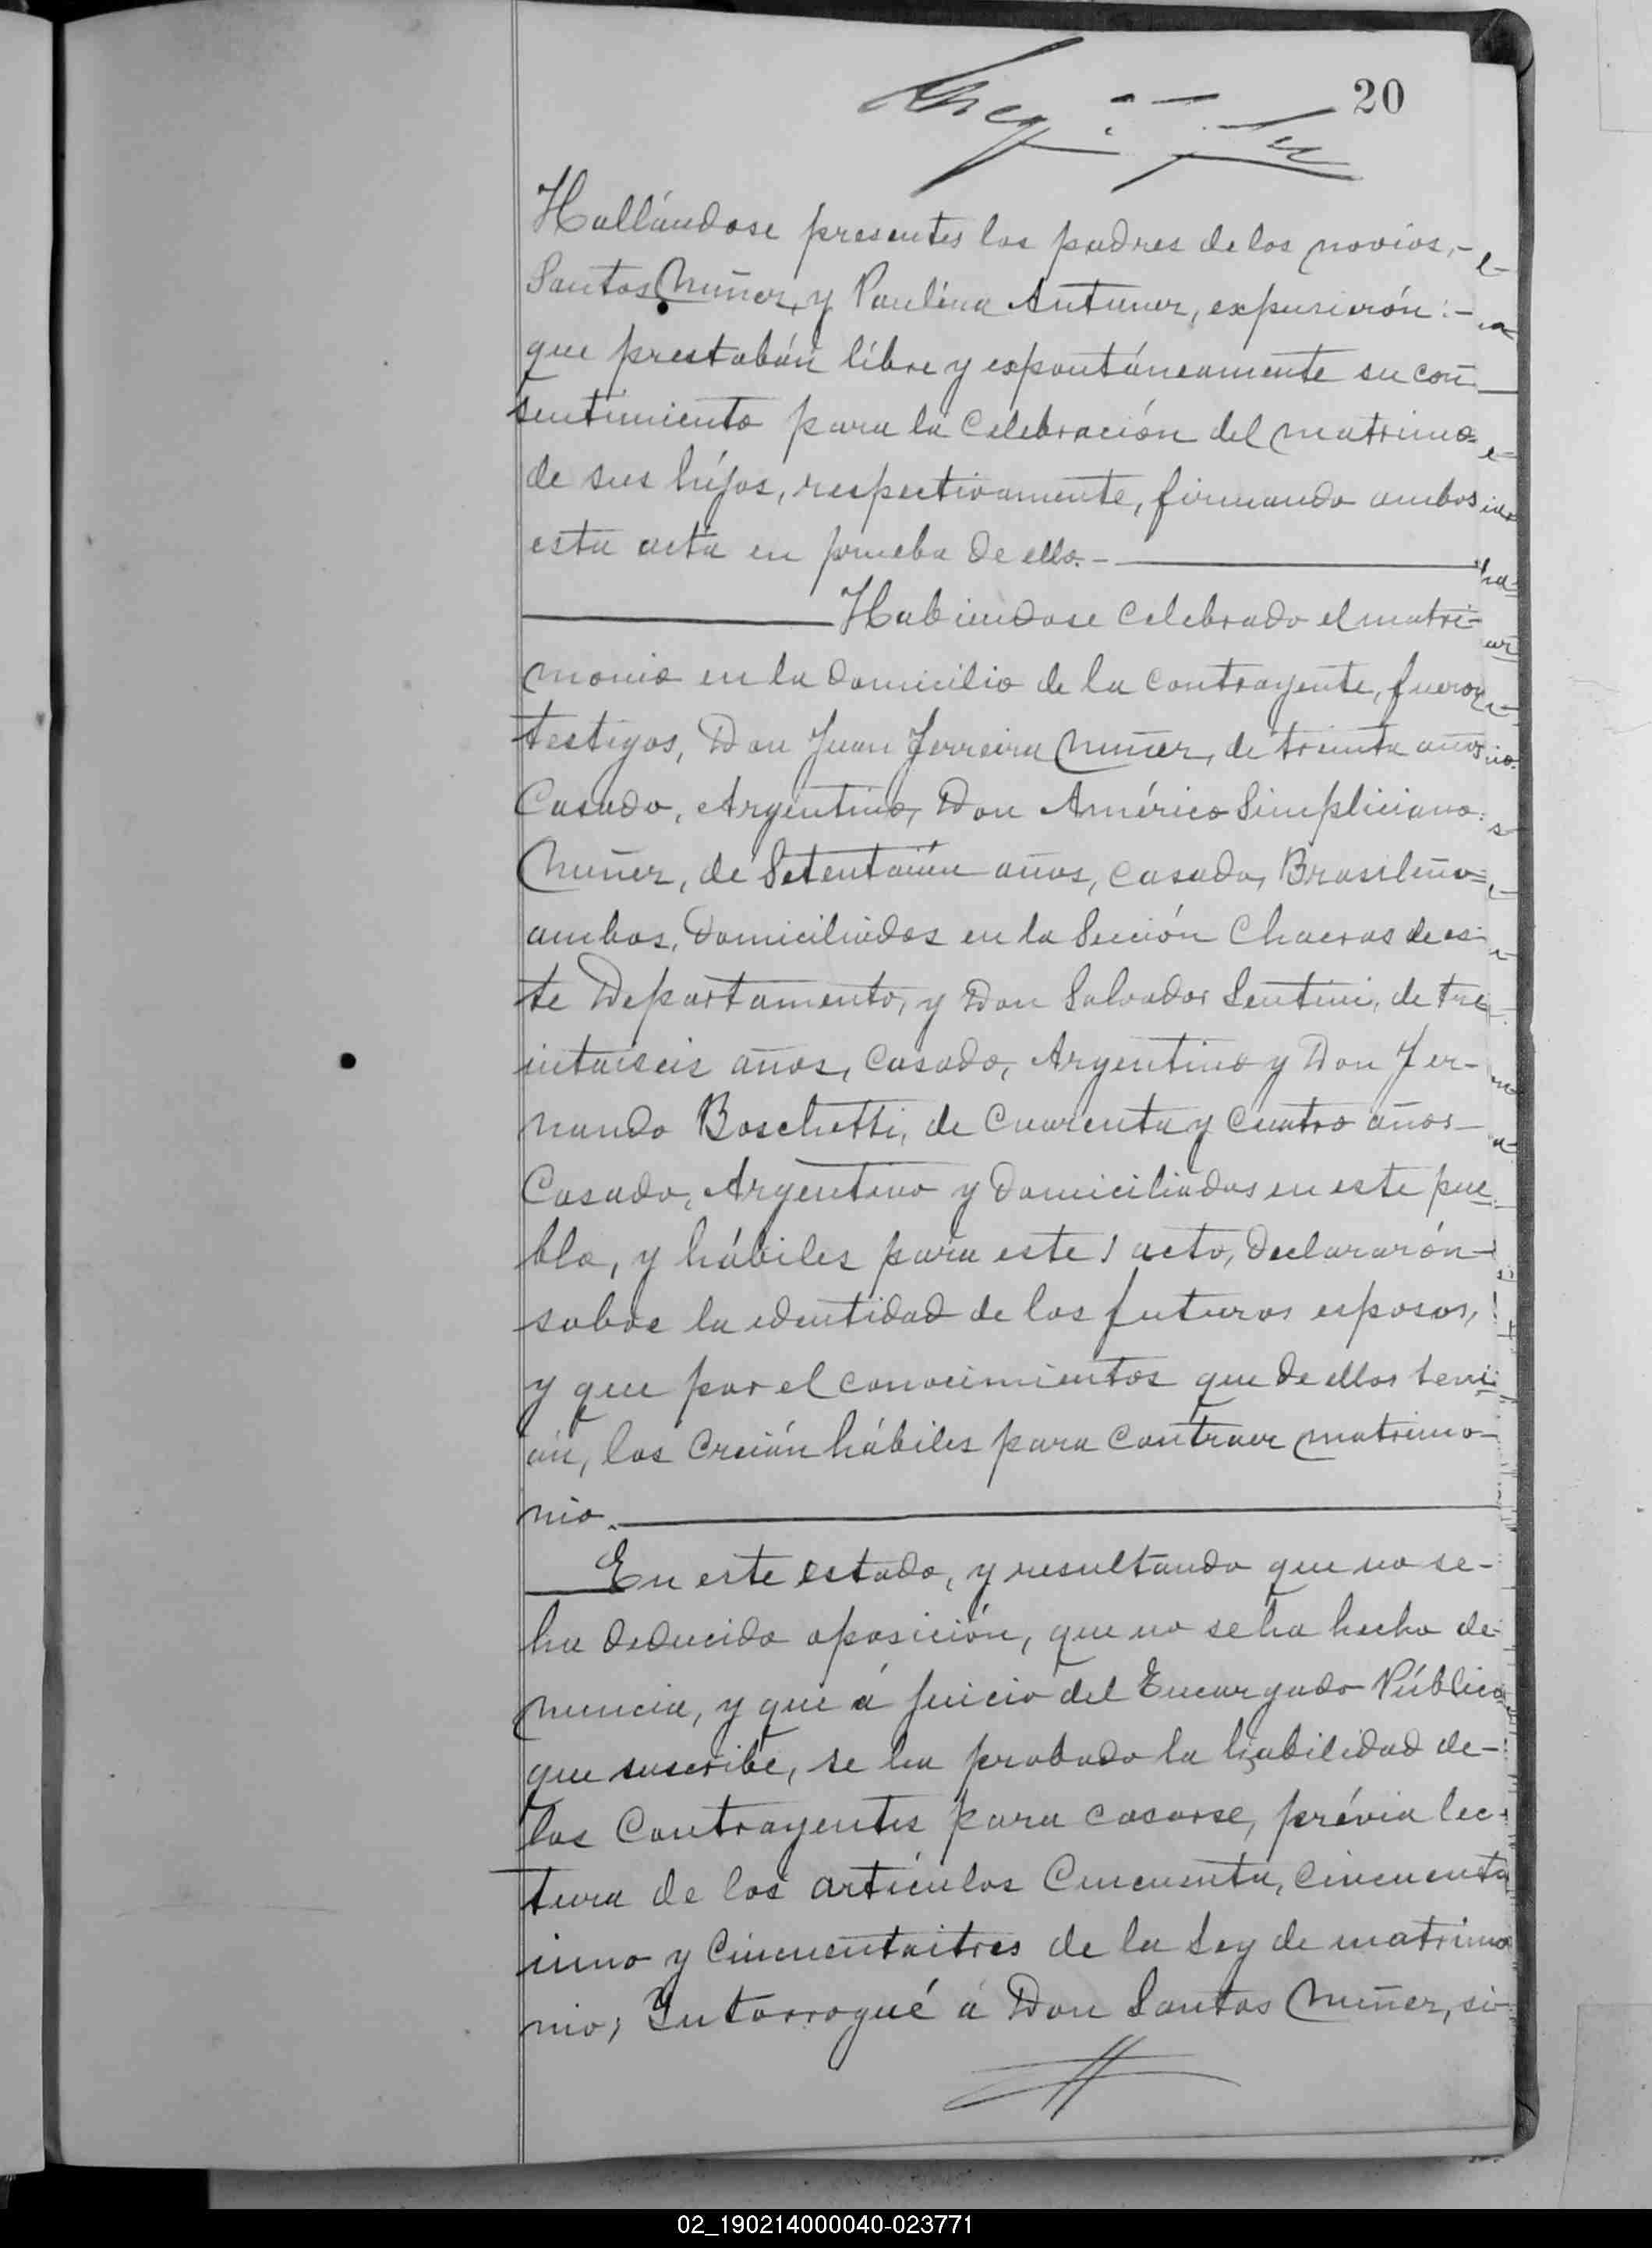 20
Hallándose presentes los padres de los novios,-
Santos Nuñez, y Paulina Antunez, expusierón:-
que prestabán libre y expontáneamente su con
sentimiento para la Celebración del matrimo=
de sus hijos, respectivamente, firmando ambos
esta acta en prueba de ello.-
Habiendose Celebrado el matri-
monio en la domicilio de la contrayente, fueron
testigos, Don Juan Ferreira Nuñez, de treinta años
Casado, Argentino, Don Américo Simpliciano
Nuñez, de Setentaiún años, casado, Brasileño=
ambos, domiciliados en la Sección Chacras de es-
te Departamento, y Don Salvador Sentini, de tre
intaiseis años, casado, Argentino y Don Fer-
nando Boschetti, de Cuarenta y Cuatro años-
Casado, Argentino y domiciliados en este pue
blo, y hábiles para este acto, declararón-
sobre la identidad de los futuros esposos,
y que por el conocimientos que de ellos tení
án, los Creián hábiles para Contraer matrimo-
nio.
En este estado, y resultando que no se-
ha deducido oposición, que no se ha hecho de-
nuncia, y que á juicio del Encargado Público
que suscribe, se ha probado la habilidad de-
los Contrayentes para casarse, prévia lec-
tura de los artículos Cincuenta, Cincuenta
iuno y Cincuentaitres de la Ley de matrimo
nio; Intorrogué á Don Santos Nuñez, si
02_190214000040-023771